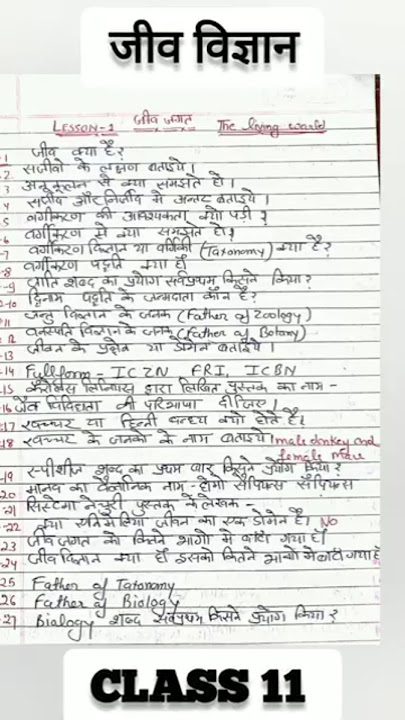 जीव विज्ञान
LESSON-1 जीव जगत The living world
-1 जीव क्या है?
-2 सजीवो के लक्षण बताइये।
3 अनुकूलन से क्या समझते हो।
4 सजीव और निर्जीव में अन्तर बताइये।
-5 वर्गीकरण की आवश्यकता क्यो पड़ी?
-6 वर्गीकरण से क्या समझते हो?
-7 वर्गीकरण विज्ञान या वर्गिकी (Taxonomy) क्या है?
-8 वर्गीकरण पद्दति क्या है।
-9 जाति शब्द का प्रयोग सर्वप्रथम किसने किया?
2-10 द्विनाम पद्दति के जन्मदाता कौन है?
-11 जन्तु विज्ञान के जनक (Father of Zoology)
12 वनस्पति विज्ञान के जनक (Father of Botany)
-13 जीवन के प्रक्षेत्र या डोमेन बताइये।
-14 Fullform - ICZN FRI, ICBN
-15 कैरोलस लिनियस द्वारा लिखित पुस्तक का नाम -
-16 जैव विविधता की परिभाषा दीजिए।
:17 खच्चर या हिन्नी बन्धय क्यो होते है।
18 खच्चर के जनको के नाम बताइये। male donkey and female mare
-19 स्पीशीज शब्द का प्रथम बार किसने प्रयोग किया?
-20 मानव का वैज्ञानिक नाम - होमो सेपियन्स सेपियन्स
-21 सिस्टेमा नेचुरी पुस्तक के लेखक -
-22 क्या एनिमेलिया जीवन का एक डोमेन है। No
-23 जीव जगत को कितने भागो में बांटा गया है।
-24 जीव विज्ञान क्या है इसको कितने भागो में बांटा गया है
25 Father of Taxonomy
26 Father of Biology
-27 Bialogy शब्द सर्वप्रथम किसने प्रयोग किया?
CLASS 11